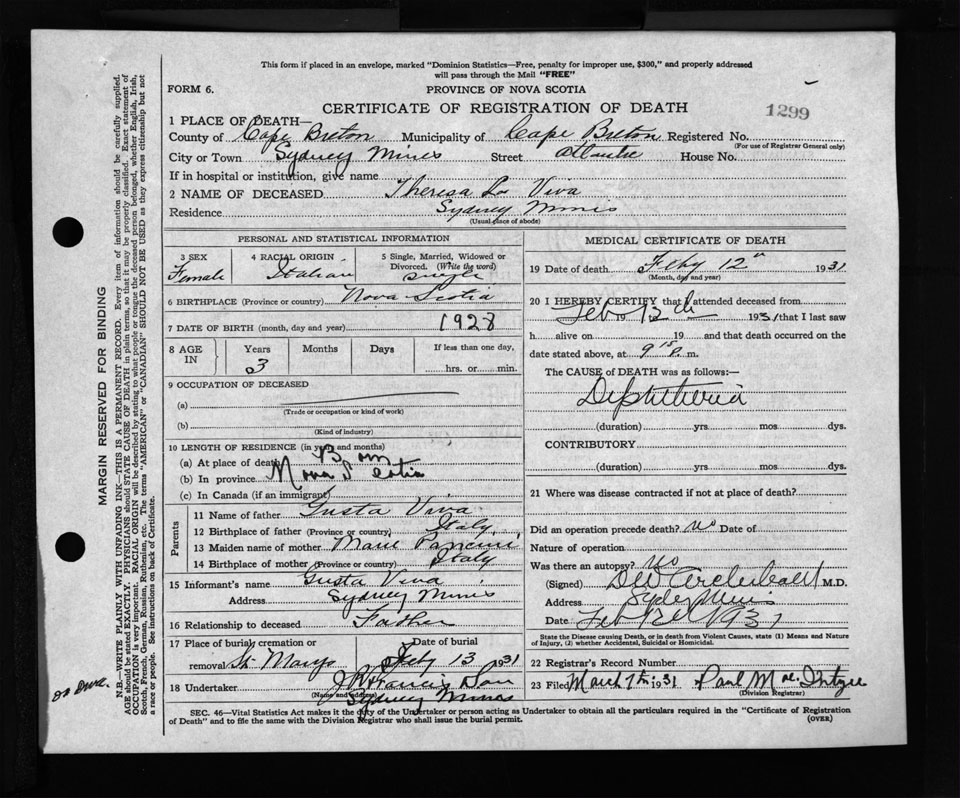 This form if placed in an envelope, marked "Dominion Statistics—Free, penalty for improper use, $300," and properly addressed
will pass through the Mail "FREE"
FORM 6.
PROVINCE OF NOVA SCOTIA
CERTIFICATE OF REGISTRATION OF DEATH
1299
1 PLACE OF DEATH—
County of Cape Breton Municipality of Cape Breton Registered No.
(For use of Registrar General only)
City or Town Sydney Mines Street Atlantic House No.
If in hospital or institution, give name
2 NAME OF DECEASED Theresa La Viva
Residence Sydney Mines
(Usual place of abode)
PERSONAL AND STATISTICAL INFORMATION
3 SEX 4 RACIAL ORIGIN 5 Single, Married, Widowed or
Divorced. (Write the word)
Female Italian single
6 BIRTHPLACE (Province or country) Nova Scotia
7 DATE OF BIRTH (month, day and year) 1928
8 AGE IN Years Months Days If less than one day,
3 hrs. or min.
9 OCCUPATION OF DECEASED
(a)
(Trade or occupation or kind of work)
(b)
(Kind of industry)
10 LENGTH OF RESIDENCE (in years and months)
(a) At place of death Born
(b) In province Nova Scotia
(c) In Canada (if an immigrant)
Parents
11 Name of father Gusta Viva
12 Birthplace of father (Province or country) Italy
13 Maiden name of mother Marie
14 Birthplace of mother (Province or country) Italy
15 Informant's name Gusta Viva
Address Sydney Mines
16 Relationship to deceased Father
17 Place of burial, cremation or Date of burial
removal St. Marys Feby 13 1931
18 Undertaker
(Name and address)
Sydney Mines
MEDICAL CERTIFICATE OF DEATH
19 Date of death Feby 12th 1931
(Month, day and year)
20 I HEREBY CERTIFY that I attended deceased from
Feb 12th 1931 that I last saw
h alive on 19 and that death occurred on the
date stated above, at 9 15 P. m.
The CAUSE of DEATH was as follows:—
Diphtheria
(duration) yrs. mos. dys.
CONTRIBUTORY
(duration) yrs. mos. dys.
21 Where was disease contracted if not at place of death?
Did an operation precede death? no Date of
Nature of operation
Was there an autopsy? No
(Signed) Archibald M.D.
Address Sydney Mines
Date Feb 1931
State the Disease causing Death, or in death from Violent Causes, state (1) Means and Nature
of Injury, and (2) whether Accidental, Suicidal or Homicidal.
22 Registrar's Record Number
23 Filed March 7th 1931 Paul
(Division Registrar)
SEC. 46—Vital Statistics Act makes it the duty of the Undertaker or person acting as Undertaker to obtain all the particulars required in the "Certificate of Registration
of Death" and to file the same with the Division Registrar who shall issue the burial permit.
(OVER)
MARGIN RESERVED FOR BINDING
N.B.—WRITE PLAINLY WITH UNFADING INK—THIS IS A PERMANENT RECORD. Every item of information should be carefully supplied.
AGE should be stated EXACTLY. PHYSICIANS should STATE CAUSE OF DEATH in plain terms, so that it may be properly classified. Exact statement of
OCCUPATION is very important. RACIAL ORIGIN will be described by stating to what people or tongue the deceased person belonged, whether English, Irish,
Scotch, French, German, Russian, Ruthenian, etc. The terms "AMERICAN" or "CANADIAN" SHOULD NOT BE USED as they express citizenship but not
a race or people. See instructions on back of Certificate.